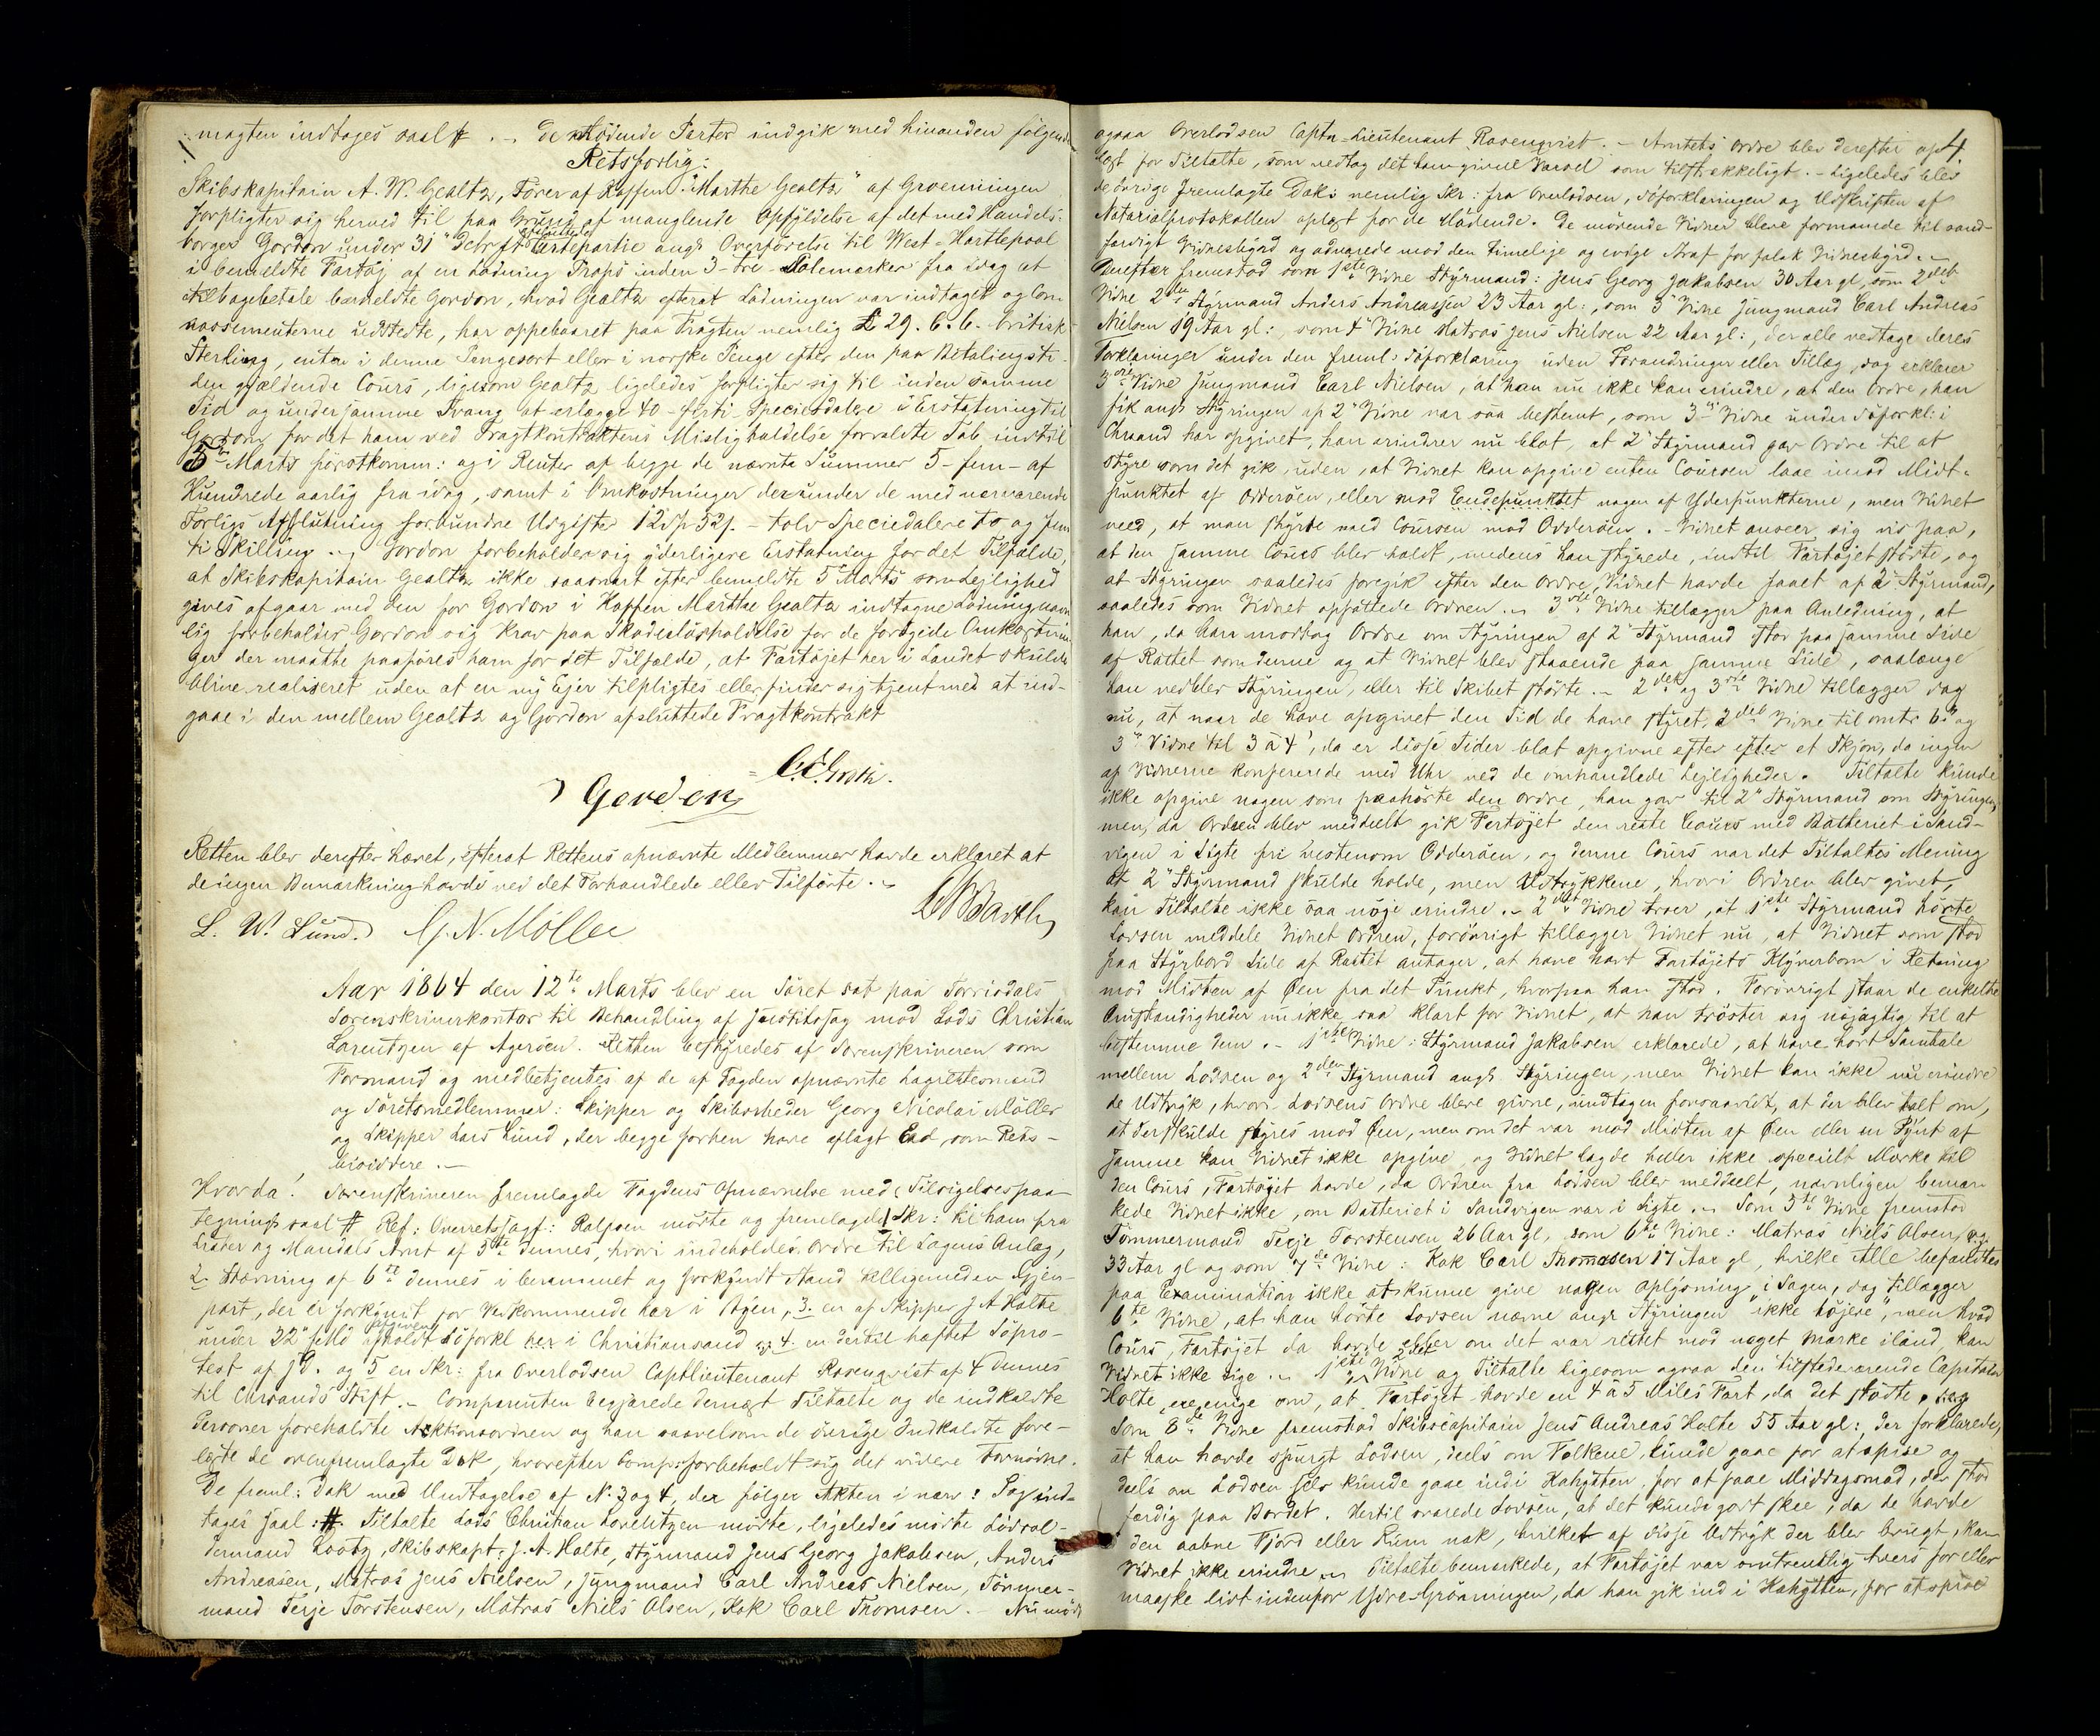 magten indtages saal # . – De mødende Parter indgik med hinanden følgende
Retsforlig:
Skibskapitain A. W. Gealtz, Fører af Koffen "Marthe Gealtz" af Groenningen
forpligter sig herved til paa Grund af manglende Opfyldelse af det med Handels-
borger Gordon under 31" Decbr f A sluttede Certepartie angd Overførelse til West-Hartlepool
i bemeldte Fartøj af en Ladning Props inden 3 - tre - Solemærker fra idag at
tilbagebetale bemeldte Gordon, hvad Gealtz efterat Ladningen var indtaget og Con
nossementerne udstedte, har oppebaaret paa Fragten nemlig £ 29. 6. 6. britisk
Sterling, enten i denne Pengesort eller i norske Penge efter den paa Betalingsti-
den gjældende Cours, ligesom Gealtz ligeledes forpligter sig til inden samme
Tid og under samme Tvang at erlægge 40 - firti - Speciesdalere i Erstatning til
Gordon for det ham ved Fragtkontraktens Misligholdelse forvoldte Tab indtil
5te Marts førstkomm: og i Renter af begge de nævnte Summer 5 - fem - af
Hundrede aarlig fra idag, samt i Omkostninger derunder de med nærværende
Forligs Afslutning forbundne Udgifter 12 Sp 52 s. - tolv Speciedalere to og fem
ti Skilling. – Gordon forbeholder sig yderligere Erstatning for det Tilfælde,
at Skibskapitain Gealtz ikke saasnart efter bemeldte 5" Marts som Lejlighed
gives afgaar med den for Gordon i Koffen Marthe Gealtz indtagne Ladning navn
lig forbeholder Gordon sig Krav paa Skadesløsholdelse for de forøgede Omkostnin-
ger der maatte paaføres ham for det Tilfælde, at Fartøjet her i Landet skulde
blive realiseret uden at en ny Ejer tilpligtes eller finder sig tjent med at ind-
gaae i den mellem Gealtz og Gordon afsluttede Fragtkontrakt
Gordon
Retten blev derefter hævet, efterat Rettens opnævnte Medlemmer havde erklæret at
de ingen Bemærkning havde ved det Forhandlede eller Tilførte. –
L. W. Lund. G. N. Møller
Aar 1864 den 12te Marts blev en Søret sat paa Torrisdals
Sorenskriverkontor til Behandling af Justitssag mod Lods Christian
Lorentzen af Agerøen. Retten bestyredes af Sorenskriveren som
Formand og medbetjentes af de af Fogden opnævnte Lagrettesmænd
og Søretsmedlemmer: Skipper og Skibsrheder Georg Nicolai Møller
og Skipper Lars Lund, der begge forhen have aflagt Eed som Rets-
bisiddere. –
Hvorda! Sorenskriveren fremlagde Fogdens Opnævnelse med Tilsigelsespaa-
tegning saal # Ref: Overretssagf: Ralfsen mødte og fremlagde 1 Skr: til ham fra
Lister og Mandals Amt af 5te dennes, hvori indeholdes Ordre til Sagens Anlæg,
2 Stævning af 6te dennes i berammet og forkyndt Stand tilligemed en Gjen-
part, der er forkyndt for Vedkommende her i Byen, 3. en af Skipper J. A. Holte
under 22" f M afgiven Søforkl her i Christiansand og 4. en dertil hæftet Søpro-
test af s D. og 5 en Skr: fra Overlodsen Captlieutenant Rosenqvist af 4 dennes
til Chrsands Stift. – Comparenten begjærede dernæst Tiltalte og de indkaldte
Personer foreholdte Actionsordren og han saavelsom de øvrige Indkaldte fore-
læste de ovenfremlagte Dok, hvorefter Comp: forbeholdt sig det videre Fornødne.
De freml: Dok med Undtagelse af N. 3 og 4, der følger Akten i nærv: Sag ind-
tages saal: # Tiltalte Lods Christian Lorentzen mødte, ligeledes mødte Lodsol-
dermand Lootz, Skibskapt: J. A. Holte, Styrmand Jens Georg Jakobsen, Anders
Andreasen, Matros Jens Nielsen, Jungmand Carl Andreas Nielsen, Tømmer-
mand Terje Torstensen, Matros Niels Olsen, Kok Carl Thomsen. – Nu mødte
4.
ogsaa Overlodsen Captn-Lieutenant Rosenqvist. – Amtets Ordre blev derefter op
læst for Tiltalte, som vedtog det ham givne Varsel som tilstrækkeligt. – Ligeledes blev
de øvrige fremlagte Dok: nemlig Skr: fra Overlodsen, Søforklaringen og Udskriften af
Notarialprotokollen oplæst for de Mødende. De mødende Vidner bleve formanede til sand-
færdigt Vidnesbyrd og advarede mod den timelige og evige Straf for falsk Vidnesbyrd. –
Derefter fremstod som 1ste Vidne Styrmand: Jens Georg Jakobsen 30 Aar gl, som 2det
Vidne 2den Styrmand Anders Andreassen 23 Aar gl:, som 3" Vidne Jungmand Carl Andreas
Nielsen 19 Aar gl:, som 4" Vidne Matros Jens Nielsen 22 Aar gl:, der alle vedtage deres
Forklaringer under den freml: Søforklaring uden Forandringer eller Tillæg, dog erklærer
3die Vidne Jungmand Carl Nielsen, at han nu ikke kan erindre, at den Ordre, han
fik angd Styringen af 2" Vidne var saa bestemt, som 3" Vidne under Søforkl: i
Chrsand har opgivet, han erindrer nu blot, at 2" Styrmand gav Ordre til at
styre som det gik, uden, at Vidnet kan opgive enten Coursen laae imod Midt-
punktet af Odderøen, eller mod Endepunktet nogen af Yderpunkterne, men Vidnet
veed, at man styrte med Coursen mod Odderøen. – Vidnet anseer sig vis paa,
at den samme Cours blev holdt, medens han styrede, indtil Fartøjet stødte, og
at Styringen saaledes foregik efter den Ordre, Vidnet havde faaet af 2" Styrmand,
saaledes som Vidnet opfattede Ordren. – 3die Vidne tillægger paa Anledning, at
han, da han modtog Ordre om Styringen af 2" Styrmand stod paa samme Side
af Rattet som denne og at Vidnet blev staaende paa samme Side, saalænge
han vedblev Styringen, eller til Skibet stødte. – 2det og 3die Vidne tillægger dog
nu, at naar de have opgivet den Tid de have styret, 2det Vidne til omtr 6" og
3" Vidne til 3 à 4', da er disse Tider blot opgivne efter efter et Skjøn, da ingen
af Vidnerne konfererede med Uhr ved de omhandlede Lejligheder. Tiltalte kunde
ikke opgive nogen som paahørte den Ordre, han gav til 2" Styrmand om Styringen,
men, da Ordren blev meddeelt gik Fartøjet den rette Cours med Batteriet i Sand-
vigen i Sigte fri vestenom Odderøen, og denne Cours var det Tiltaltes Mening
at 2" Styrmand skulde holde, men Udtrykkene, hvori Ordren blev givet,
kan Tiltalte ikke saa nøje erindre. – 2det Vidne troer, at 1ste Styrmand hørte
Lodsen meddele Vidnet Ordren, forøvrigt tillægger Vidnet nu, at Vidnet som stod
paa Styrbord Side af Rattet antager, at have havt Fartøjets Klyverbom i Retning
mod Midten af Øen fra det Punkt, hvorpaa han stod Forøvrigt staar de enkelte
Omstændigheder nu ikke saa klart for Vidnet, at han trøster sig nøjagtig til at
bestemme dem. – 1ste Vidne: Styrmand Jakobsen erklærede, at have hørt Samtale
mellem Lodsen og 2den Styrmand angd Styringen, men Vidnet kan ikke nu erindre
de Udtryk, hvori Lodsens Ordre bleve givne, undtagen forsaavidt, at der blev talt om,
at der skulde styres mod Øen, men om det var mod Midten af Øen eller en Pynt af
samme kan Vidnet ikke opgive og Vidnet lagde heller ikke specielt Mærke til
den Cours, Fartøjet havde, da Ordren fra Lodsen blev meddeelt, navnligen bemær
kede Vidnet ikke, om Batteriet i Sandvigen var i Sigte. – Som 5te Vidne fremstod
Tømmermand Terje Torstensen 26 Aar gl, som 6te Vidne: Matros Niels Olsen,
33 Aar gl og som 7de Vidne: Kok Carl Thomsen 17 Aar gl, hvilke Alle befandtes
paa Examination ikke at kunne give nogen Oplysning i Sagen, dog tillægger
6te Vidne, at han hørte Lodsen nævne angd Styringen "ikke højere", men hvad
Cours, Fartøjet da havde eller om det var rettet mod noget Mærke iland, kan
Vidnet ikke sige. – 1ste 2det Vidne og Tiltalte ligesom ogsaa den tilstedeværende Capitain
Holte, ere enige om, at Fartøjet havde en 4 à 5 Miles Fart, da det stødte.
Som 8de Vidne fremstod Skibscapitain Jens Andreas Holte 55 Aar gl:, der forklarede,
at han havde spurgt Lodsen, deels om Folkene kunde gaae for at spise og
deels om Lodsen selv kunde gaae ind i Kahytten, for at faae Middagsmad, der stod
færdig paa Bordet. Hertil svarede Lodsen, at det kunde godt skee, da de havde
den aabne Fjord eller Rum nok, hvilket af disse Udtryk der blev brugt, kan
Vidnet ikke erindre – Tiltalte bemærkede, at Fartøjet var omtrentlig tvers for eller
maaske lidt indenfor Ydre-Grønningen, da han gik ind i Kahytten, for at spise